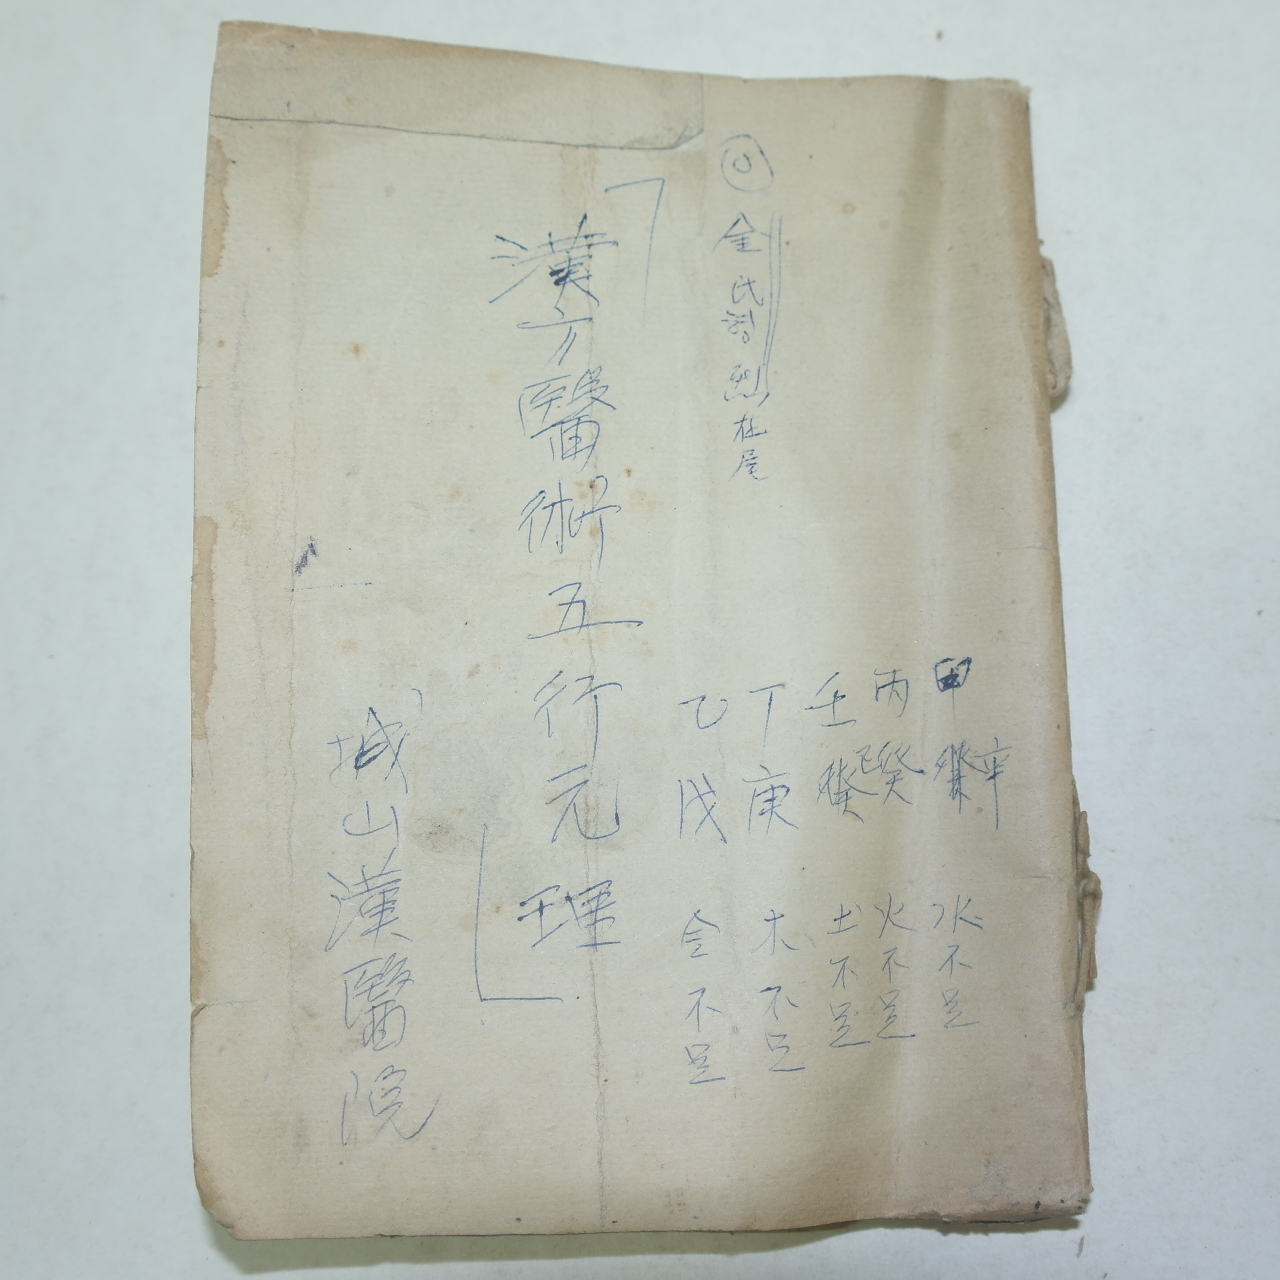 甲辛 水不足
丙癸 火不足
壬己 土不足
丁庚 木不足
乙戊 金不足
金氏 烈
「漢方醫術五行元理」
城山漢醫院